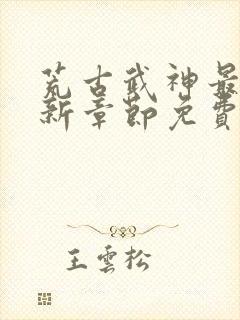 荒古武神最
新章節免費
王雲松